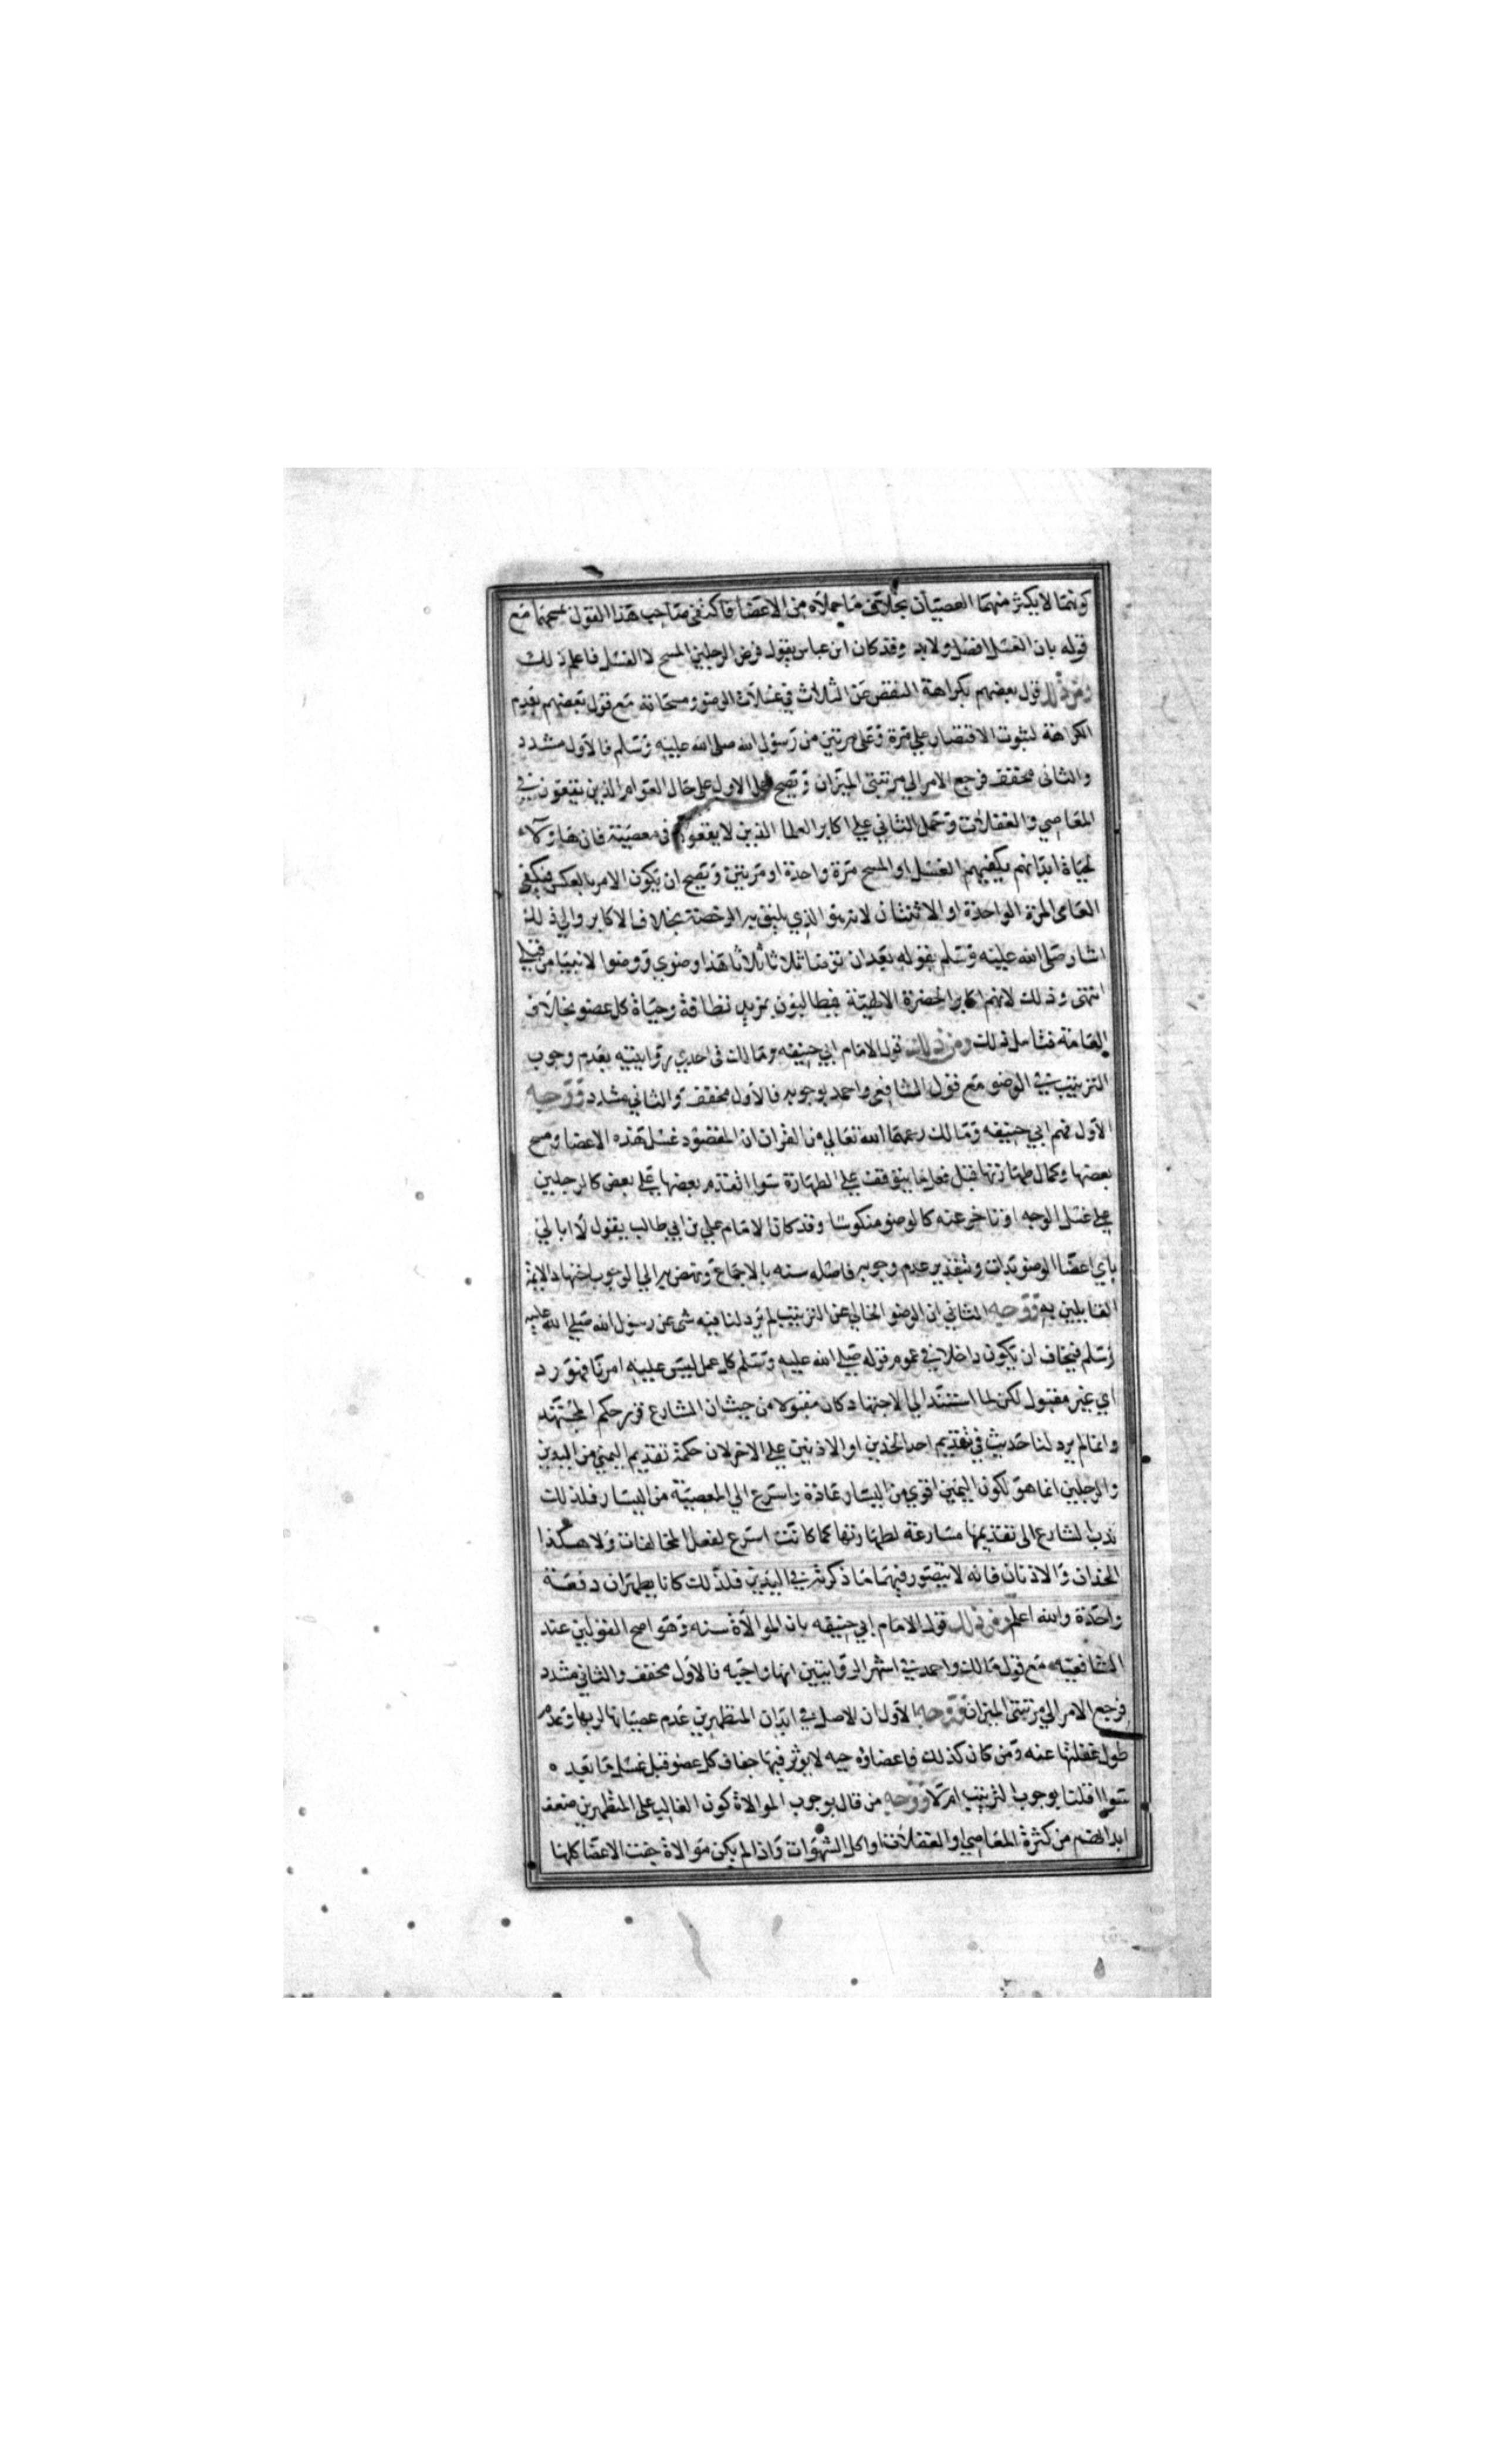 كونهما لا يكثر منهما العصيان بخلاف ما حملاه من الاعضا فاكتفى صاحب هذا القول بمسحهما مع
قوله بان الغسل افضل ولا بد وقد كان ابن عباس يقول فرض الرجلين المسح لا الغسل فاعلم ذلك
ومن ذلك قول بعضهم بكراهة النقص عن الثلاث في غسلات الوضو ومسحاته مع قول بعضهم بعدم
الكراهة لثبوت الاقتصار على مرة وعلى مرتين من رسول الله صلى الله عليه وسلم فالاول مشدد
والثانى مخفف فرجع الامر الي مرتبتى الميزان ويصح حمل الاول على حال العوام الذين يقعون في
المعاصي والغفلات وحمل الثاني علي اكابر العلما الذين لا يقعون في معصية فان هاؤلاء
لحياة ابدانهم يكفيهم الغسل او المسح مرة واحدة او مرتين ويصح ان يكون الامر بالعكس فيكفي
العامى المرة الواحدة او الاثنتان لانه هو الذي يليق به الرخصة بخلاف الاكابر والي ذلك
اشار صلى الله عليه وسلم بقوله بعد ان توضا ثلاثا ثلاثا هذا وضوي ووضوا الانبيا من قبلي
انتهى وذلك لانهم اكابر الحضرة الالهية فيطالبون بمزيد نظافة وحياة كل عضو بخلاف
العامة فتامل ذلك ومن ذلك قول الامام ابي حنيفه ومالك في احدي روايتيه بعدم وجوب
الترتيب في الوضو مع قول الشافعي واحمد بوجوبه فالاول مخفف والثاني مشدد ووجه
الاول فهم ابي حنيفه ومالك رحمهما الله تعالي من القران ان المقصود غسل هذه الاعضا ومسح
بعضها وكمال طهارتها قبل فعل ما يتوقف علي الطهارة سوا تقدم بعضها على بعض كالرجلين
علي غسل الوجه او تاخر عنه كالوضو منكوسا وقد كان الامام علي بن ابي طالب يقول لا ابالي
باي اعضا الوضو بدات وبتقدير عدم وجوبه فاصله سنه بالاجماع ونهض به الي الوجوب اجتهاد الايمة
القايلين به ووجه الثاني ان الوضو الخالي عن الترتيب لم يرد لنا فيه شى عن رسول الله صلى الله عليه
وسلم فيخاف ان يكون داخلا في عموم قوله صلي الله عليه وسلم كل عمل ليس عليه امرنا فهو رد
اي غير مقبول لكن لما استند الي الاجتهاد كان مقبولا من حيث ان الشارع قرر حكم المجتهد
وانما لم يرد لنا حديث في تقديم احد الخدين او الاذنين علي الاخر لان حكمة تقديم اليمني من اليدين
والرجلين انما هو لكون اليمين اقوي من اليسار عادة واسرع الي المعصية من اليسار فلذلك
ندب الشارع الى تقديمها مسارعة لطهارتها كما كانت اسرع لفعل المخالفات ولا هكذا
الخدان والاذنان فانه لا يتصور فيهما ما ذكرته في اليدين فلذلك كانا يطهران دفعة
واحدة والله اعلم ومن ذلك قول الامام ابي حنيفه بان الموالاة سنه وهو اصح القولين عند
الشافعيه مع قول مالك واحمد في اشهر الروايتين انها واجبه فالاول مخفف والثاني مشدد
فرجع الامر الي مرتبتى الميزان ووجه الاول ان الاصل في ابدان المتطهرين عدم عصيانها لربها وعدم
طول غفلتها عنه ومن كان كذلك فاعضاؤه حيه لا يوثر فيها جفاف كل عضو قبل غسل ما بعده
سوا قلنا بوجوب الترتيب ام لا ووجه من قال بوجوب الموالاة كون الغالب على المتطهرين ضعف
ابدانهم من كثرة المعاصي او الغفلات او اكل الشهوات واذا لم يكن موالاة جفت الاعضا كلها